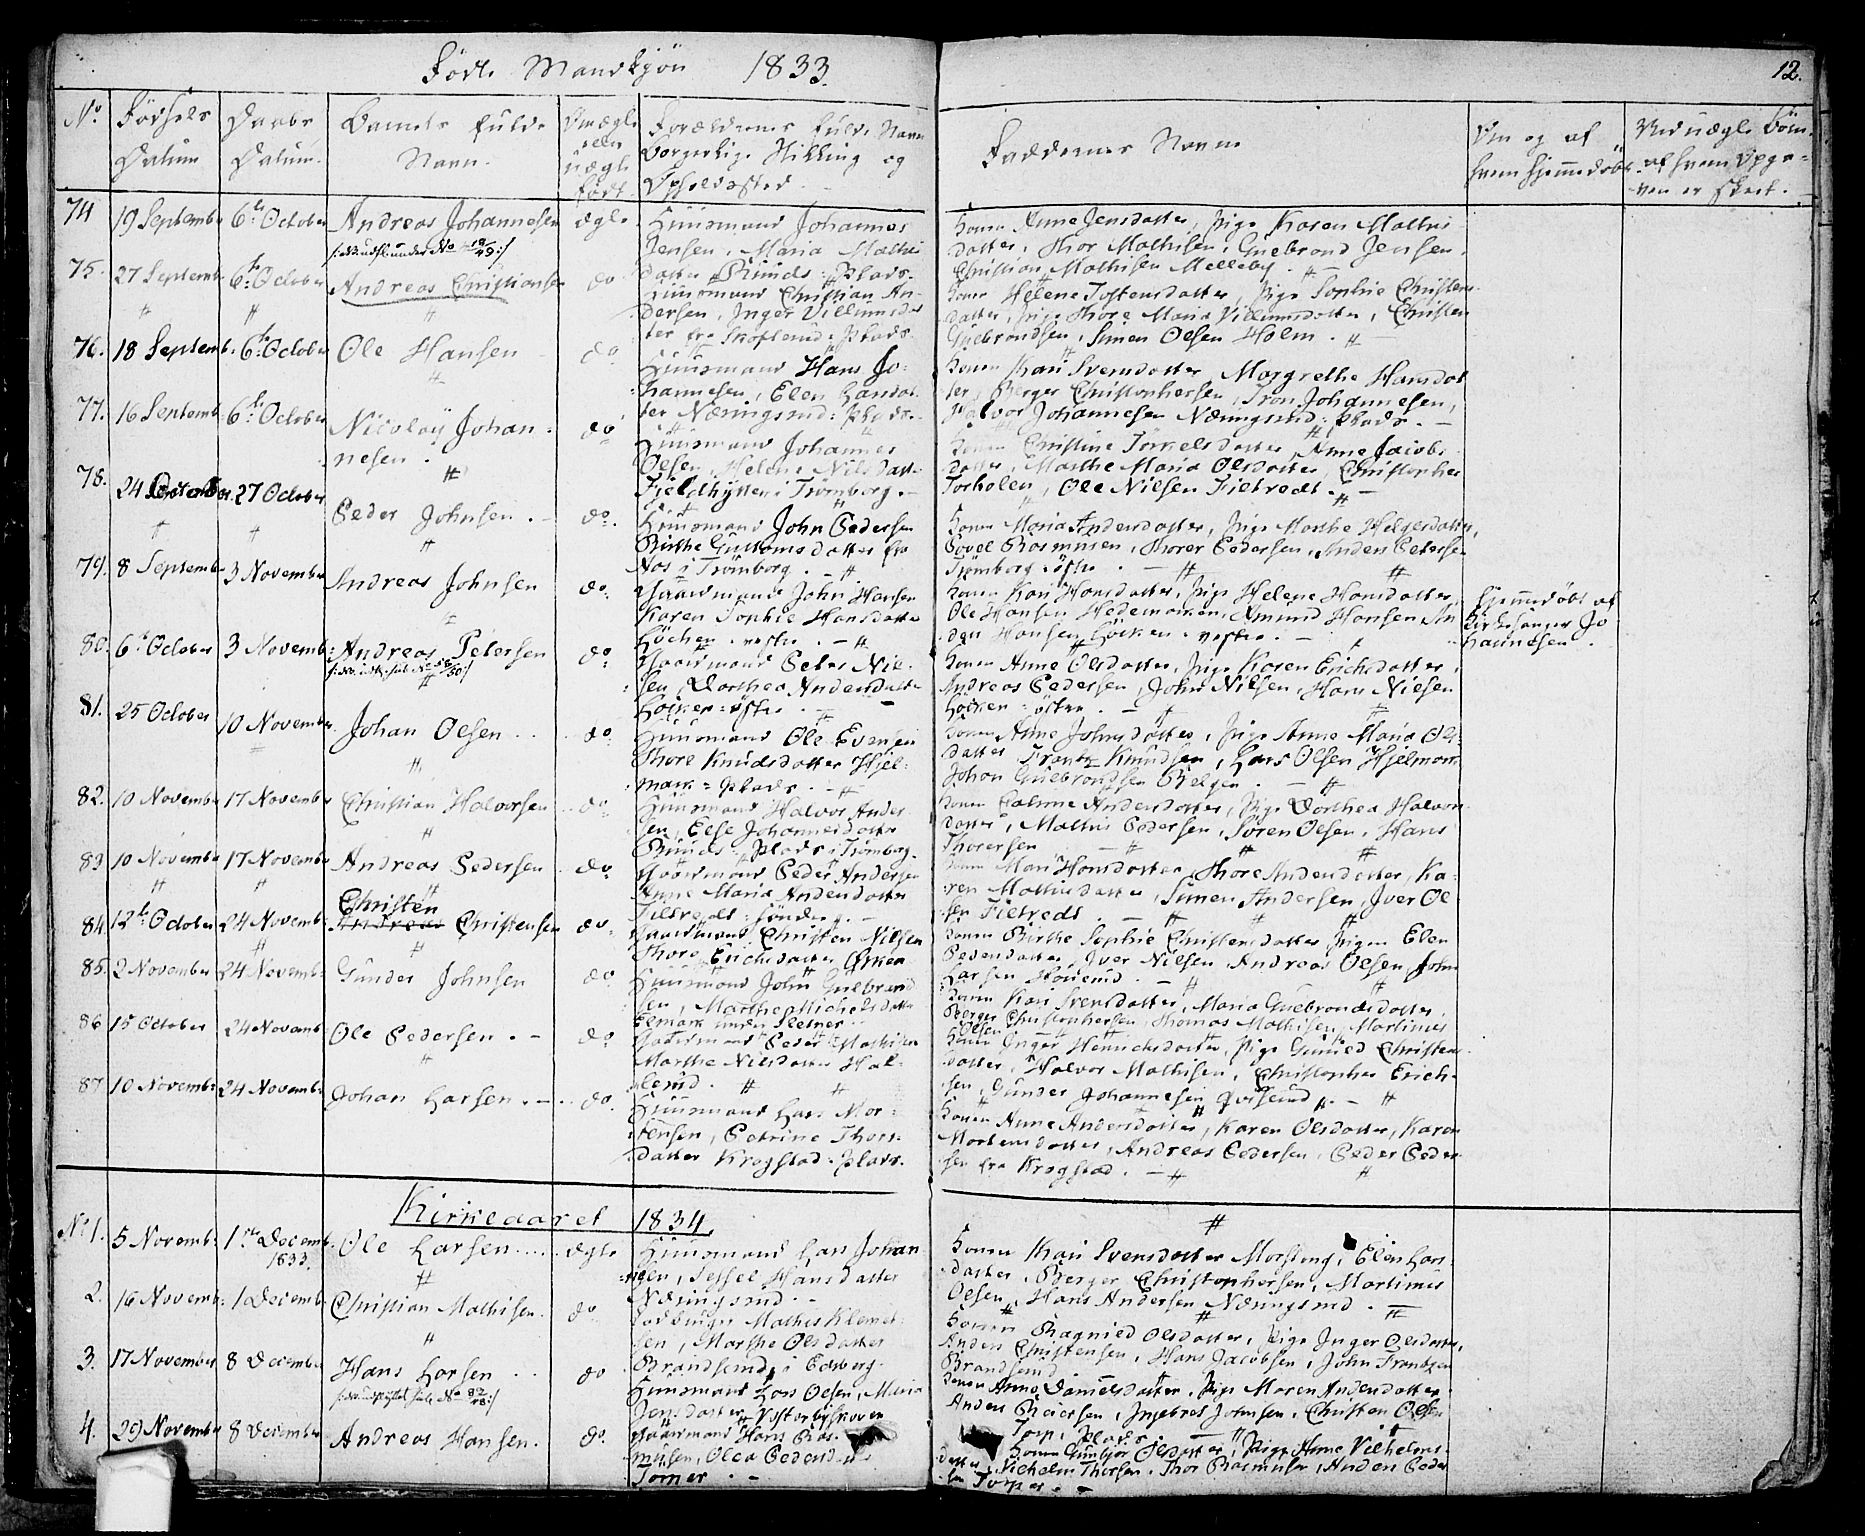 Fødte Mandkjøn 1833.
12.
No.
Fødsels Datum
Daabs Datum.
Barnets fulde Navn.
Om ægte eller uægte født.
Forældrenes fulde Navn Borgerlige Stilling og Opholdssted.
Faddernes Navne
Om og af hvem hjemmedøbt
Ved uægte Børn, af hvem Opgaven er skeet.
74 19 Septembr 6te October Andreas Johannesen ægte
Huusmand Johannes
Jensen, Maria Mathis
datter RUUds Plads.
Konen Anne Jensdatter, Pige Karen Mathis
datter, Thor Mathisen, Gulbrand Jensen,
Christian Mathisen Melleby.
75. 27 Septemb. 6te October Andreas Christiansen do
Huusmand Christian An-
dersen, Inger Villumsdat
ter fra Skofterud Plads
Konen Helene Tostensdatter, Pige Sophie Christens
datter, Pige Thore Maria Villumsdatter, Christen
Gulbrandsen, Simen Olsen Holm.
76. 18 Septemb. 6te October Ole Hansen do
Huusmand Hans Jo-
hannesen, Elen Hansdat
ter Næringsrud Plads.
Konen Kari Svensdatter, Margrethe Hansdat
ter, Berger Christophersen, Tron Johannesen,
Halvor Johannesen Næringsrud Plads.
77. 16 Septemb. 6te October Nicolay Johan-
nesen. do
Huusmand Johannes
Olsen, Helene Nilsdatt.
Fieldhytten i Trømborg.
Konen Christine Torkelsdatter, Anne Jacobs
datter, Marthe Maria Olsdatter, Christopher
Torholen, Ole Nilsen Fieltvedt.
78. 24 October 27 October Peder Johnsen. do.
Huusmand John Pedersen
Birthe Guttormsdatter fra
Nos i Trømborg.
Konen Maria Andersdatter, Pige Marthe Helgesdatter,
Povel Rasmusen, Thorer Pedersen, Anders Petersen
Trømborg østre.
79. 8 Septemb. 3 November Andreas Johnsen do.
Gaardmand John Hansen
Karen Sophie Hansdatter
Høchen vestre.
Konen Kari Hansdatter, Pige Helene Hansdatter,
Ole Hansen Hedemarken, Amund Hansen, An
ders Hansen Høcken vestre.
Hjemmedøbt af
Kirkesanger Jo
hannesen.
80. 6te October 3 Novemb: Andreas Petersen do.
Gaardmand Peter Nil-
sen, Dorthea Andersdatter
Høcken østre.
Konen Anne Olsdatter, Pige Karen Erichsdatter,
Andreas Pedersen, John Nilsen, Hans Nielsen
Høcken østre.
81. 25 October 10 November. Johan Olsen do.
Huusmand Ole Evensen
Thore Knudsdatter Hjel-
mark Plads.
Konen Anne Johnsdatter, Pige Anne Maria Ols
datter Frantz Knudsen, Lars Olsen Hjelmark
Johan Gulbrandsen Velgen.
82. 10 November 17 November Christian Halvorsen do.
Huusmand Halvor Ander
sen, Else Johannesdatter
Ruuds Plads i Trømborg.
Konen Andersdatter, Pige Dorthea Halvors
datter, Mathis Pedersen, Søren Olsen, Hans
Thorersen
83 10 November 17 November Andreas Pedersen do.
Gaardmand Peder Andersen
Anne Maria Andersdatter
Fieltvedt søndre.
Konen Mari Hansdatter, Thore Andersdatter, Ka-
ren Mathisdatter, Simen Andersen, Iver Ol
sen Fieltvedt.
84. 12te October 24 Novemb: Christen
Andreas Christensen do.
Gaardmand Christen Nilsen
Thore Erichsdatter
Konen Birthe Sophie Christensdatter Pigen Elen
Pedersdatter, Iver Nilsen Andreas Olsen John
Larsen
85. 2 November 24 Novemb: Gunder Johnsen do.
Huusmand John Gulbrand
sen, Marthe Michelsdatter
Elmark under Slesner
Konen Kari Svensdatter, Maria Gulbrandsdatter,
Berger Christophersen, Thomas Mathisen, Martinus
Olsen
86 15 October 24 Novemb. Ole Pedersen. do
Gaardmand Peder Mathisen
Marthe Nilsdatter Hal-
lerud.
Konen Inger Henrichsdatter, Pige Gunild Christens
datter, Halvor Mathisen, Christopher Erich-
sen, Gunder Johannesen
87 10 Novemb: 24 Novemb: Johan Larsen. do.
Huusmand Lars Mor-
tensen, Petrine Thors
datter Krogstad Plads.
Konen Anne Andersdatter, Karen Olsdatter, Karen
Mortensdatter, Andreas Pedersen, Peder Peder
sen fra Krogstad.
Kirkeaaret 1834.
No 1. 5 Novemb: 1ste Decemb:
1833. Ole Larsen ægte
Huusmand Lars Johan
nesen, Sessel Hansdatter
Næringsrud.
Konen Kari Svensdatter Morstong, Elen Lars
datter, Berger Christophersen, Martinus
Olsen, Hans Andersen Næringsrud.
2. 16 Novemb: 1 Decemb: Christian Mathisen. do
Mathis Klemet
sen, Marthe Olsdatter
Brandsrud i Eidsberg.
Konen Ragnild Olsdatter, Pige Inger Olsdatter,
Anders Christensen, Hans Jacobsen, John Frantzen
Brandsrud.
3. 17 November 8 December Hans Larsen do
Huusmand Lars Olsen, Maria
Jensdatter Vesterbyskoven
Konen Anne Danielsdatter, Pige Maren Andersdatter
Anders Reiersen, Ingebret Johnsen, Christen Olsen
Torp Plads.
4. 29 November 8 December Andreas Hansen. do.
Gaardmand Hans Ras-
musen, Olea Pedersd
Torper.
Konen Gunbjør Olsdatter, Pige Anne Vilhelms
datter, Vilhelm Thorsen, Thor Rasmusen, Anders Peder
sen Torper.